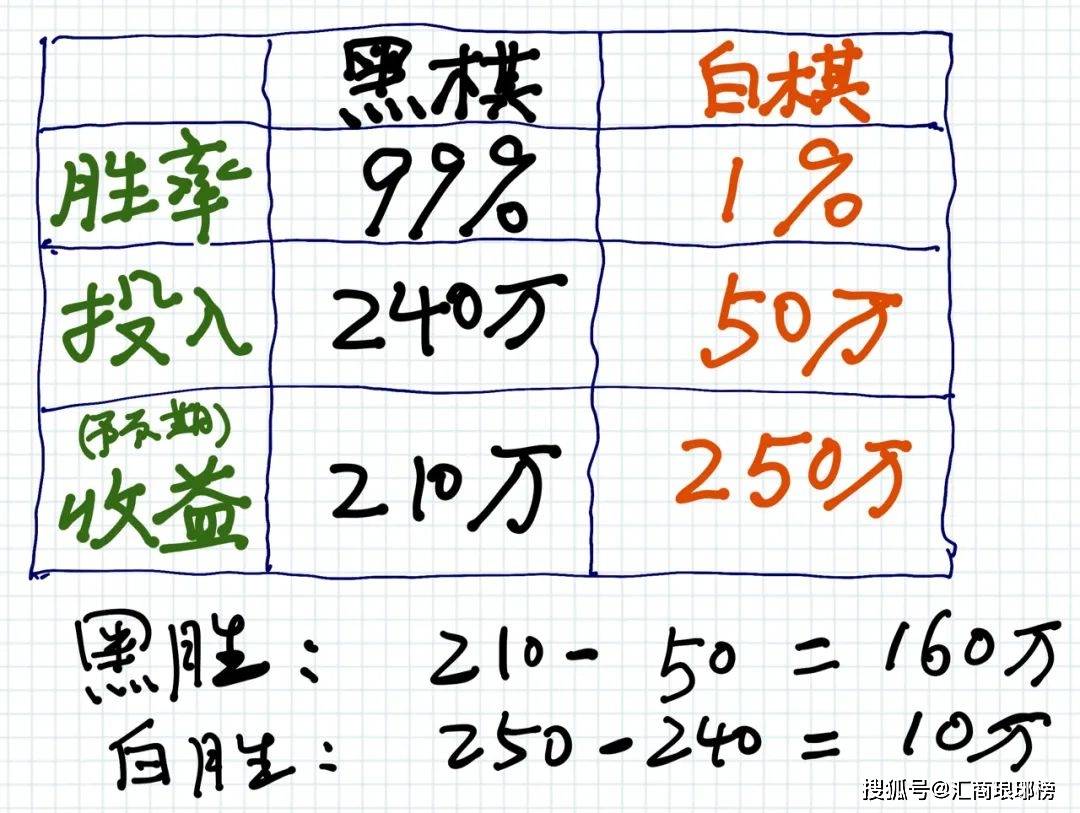 黑棋 白棋
胜率 99% 1%
投入 240万 50万
(预期)
收益 210万 250万
黑胜: 210-50=160万
白胜: 250-240=10万
搜狐号@汇商琅琊榜